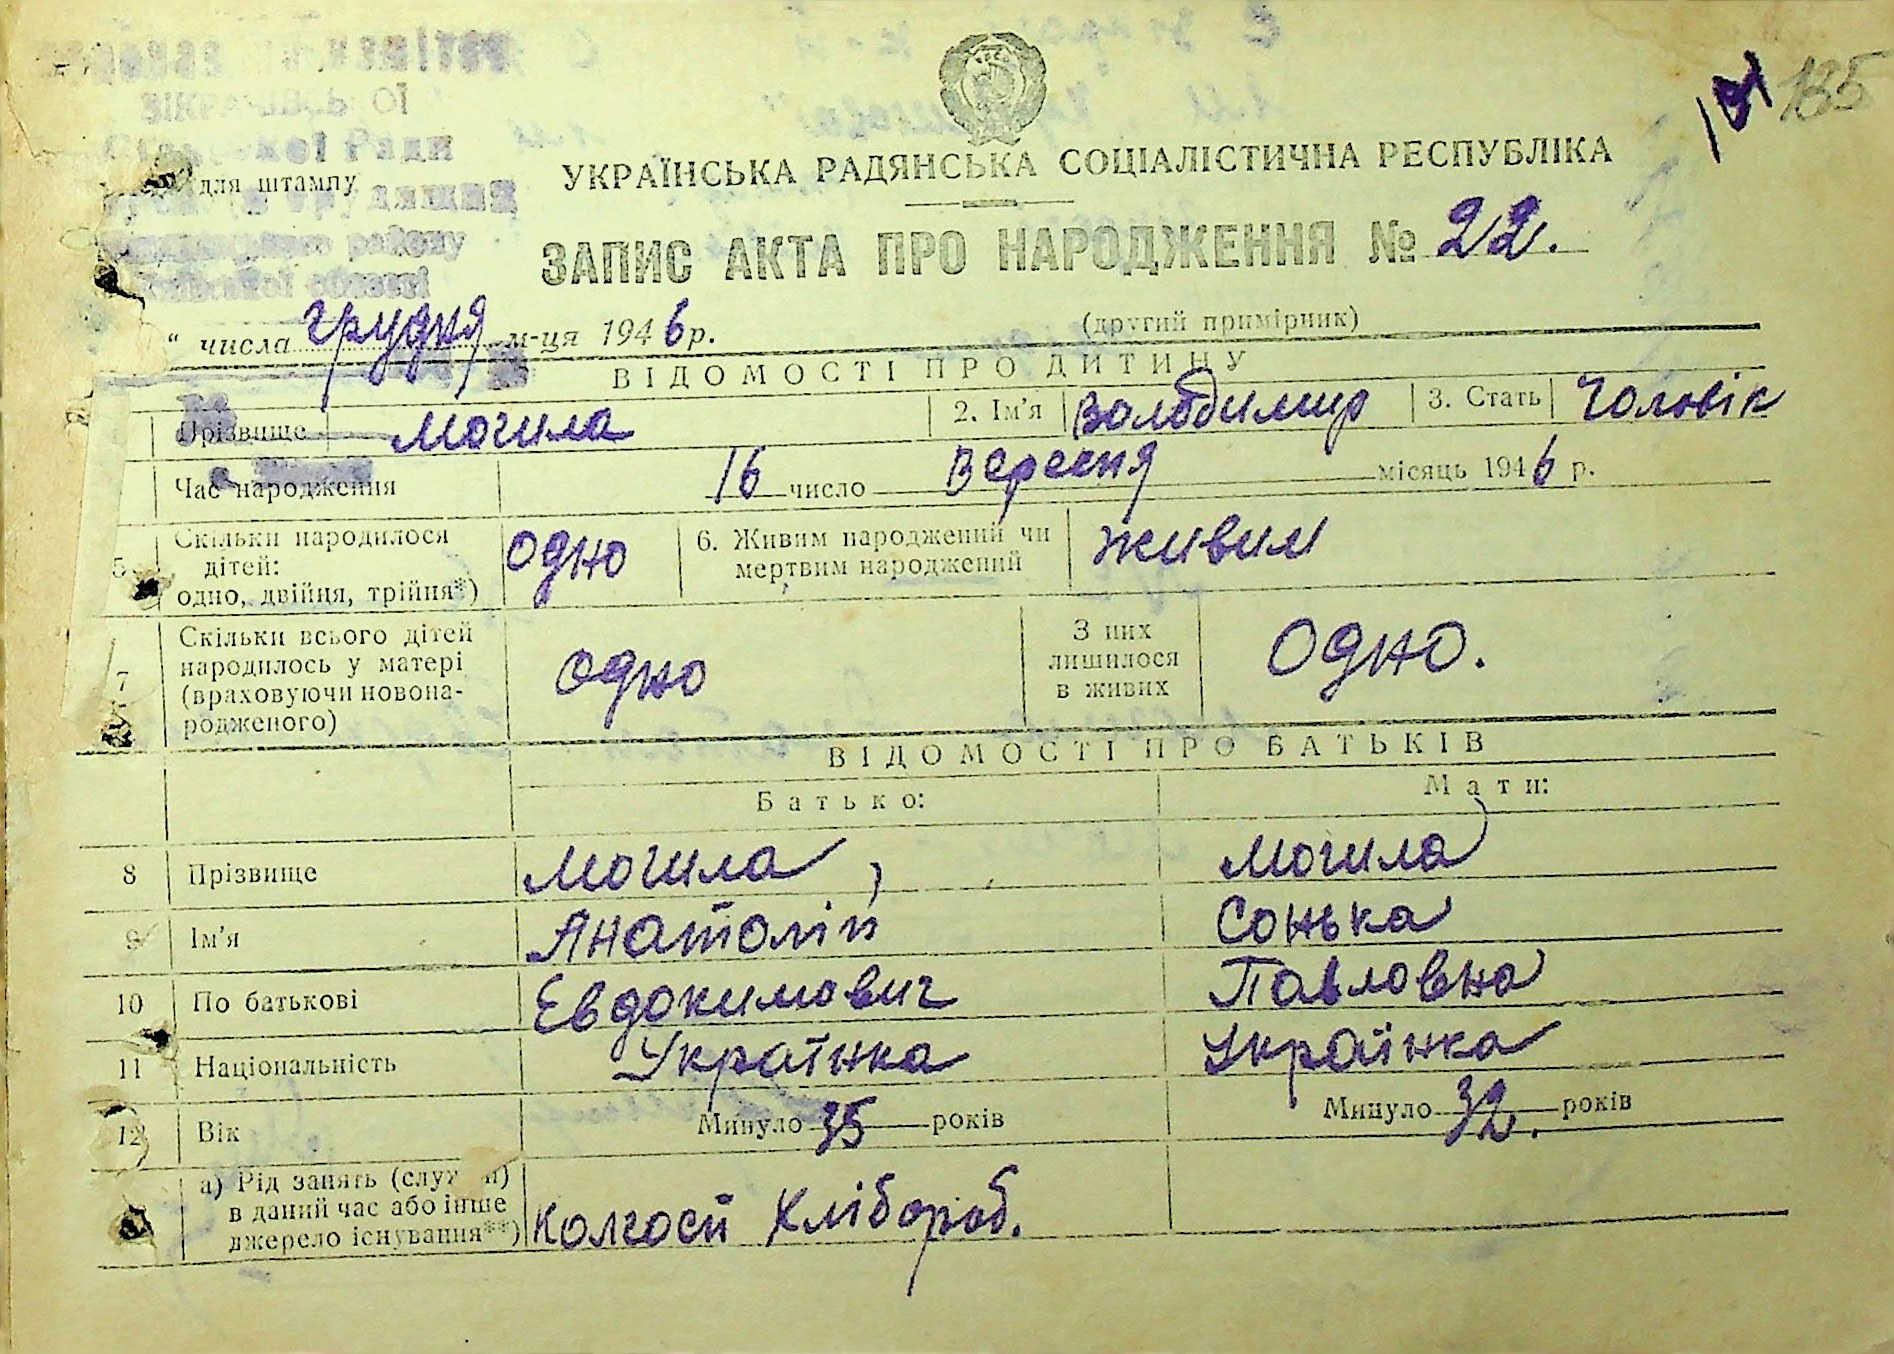 135
для штампу
УКРАЇНСЬКА РАДЯНСЬКА СОЦІАЛІСТИЧНА РЕСПУБЛІКА
ЗАПИС АКТА ПРО НАРОДЖЕННЯ № 22.
“ числа грудня м-ця 1946 р. (другий примірник)
ВІДОМОСТІ ПРО ДИТИНУ
Прізвище Могила 2. Ім’я Володимир 3. Стать Чоловік
Час народження 16 число Вересня місяць 1946 р.
5 Скільки народилося дітей: одно, двійня, трійня*) одно 6. Живим народжений чи мертвим народжений живим
7 Скільки всього дітей народилось у матері (враховуючи новонародженого) одно З них лишилося в живих одно.
ВІДОМОСТІ ПРО БАТЬКІВ
Батько: Мати:
8 Прізвище Могила Могила
9 Ім’я Анатолій Сонька
10 По батькові Евдокимович Павловна
11 Національність Українка Українка
12 Вік Минуло 35 років Минуло 32. років
а) Рід занять (служби)
в даний час або інше
джерело існування**) Колгосп Хлібороб.